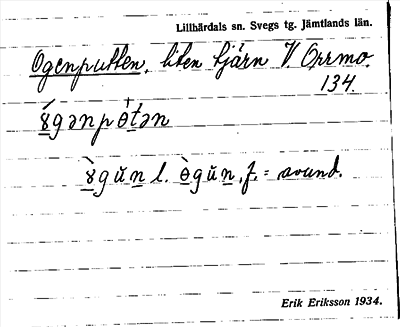 Lillhärdals sn. Svegs tg. Jämtlands län.
Ogenputten, liten tjärn V Orrmo.
134.
ɣ́gənpɵ̀tən
ɣ̀gŭn l. ɵ̀gŭn, f. = avund.
Erik Eriksson 1934.